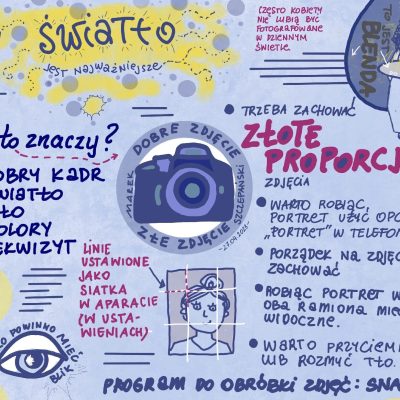 ŚWIATŁO
JEST NAJWAŻNIEJSZE
CZĘSTO KOBIETY
NIE LUBIĄ BYĆ
FOTOGRAFOWANE
W DZIENNYM
ŚWIETLE.
TO JEST
BLENDA
TO ZNACZY?
OBRY KADR
WIATŁO
ŁO
OLORY
EKWIZYT
DOBRE ZDJĘCIE
MAREK SZCZEPAŃSKI
ZŁE ZDJĘCIE
-27.04.2023-
TRZEBA ZACHOWAĆ
ZŁOTE
PROPORCJ
ZDJĘCIA
WARTO ROBIĄC,
PORTRET UŻYĆ OPC
„PORTRET" W TELEFON
PORZĄDEK NA ZDJĘC
ZACHOWAĆ
ROBIĄC PORTRET W
OBA RAMIONA MIE
WIDOCZNE.
WARTO PRZYCIEM
LUB ROZMYĆ TŁO.
LINIE
USTAWIONE
JAKO
SIATKA
W APARACIE
(W USTA-
WIENIACH)
O POWINNO MIEĆ
BLIK
PROGRAM DO OBRÓBKI ZDJĘĆ: SNA